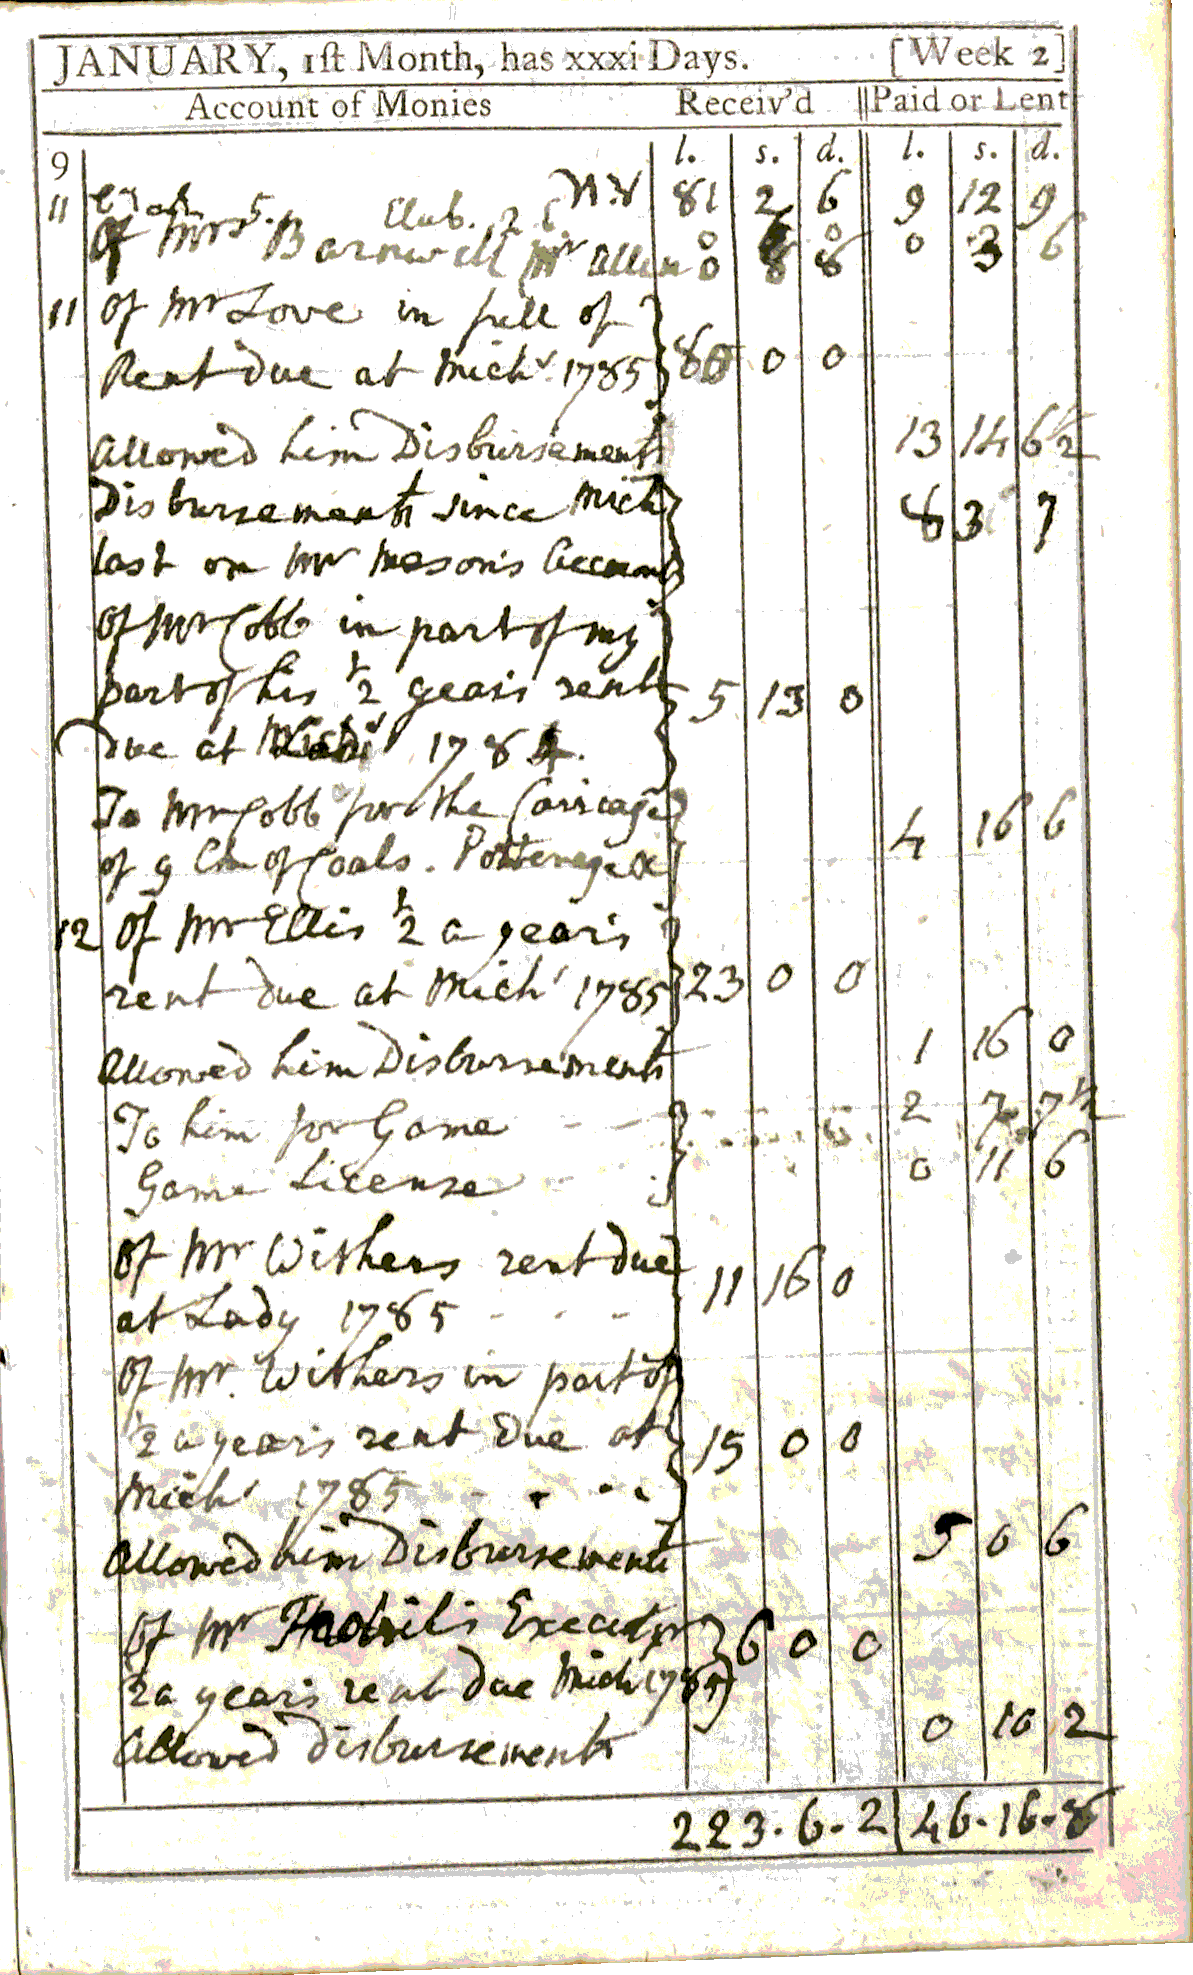 JANUARY, 1st Month, has xxxi Days. [Week 2]
Account of Monies Receiv'd Paid or Lent
l. s. d. l. s. d.
9
81 2 6 9 12 9
11 Of Mrs Barnwell Mr Allen Club. 2 6
0 0 0 3 6
0 8 8
11 Of Mr Love in full of
Rent due at Mich's 1785 80 0 0
Allowed him Disbursements 13 14 6 1/2
Disbursements since Mich 8 3 7
last on Mr Mason's Account
Of Mr Cobb in part of my
part of his 1/2 years rent 5 13 0
due at 1784.
To Mr Cobb for the Carriage
of 9 Ch of Coals. 4 16 6
12 Of Mr Ellis 1/2 a years
rent due at Mich' 1785 23 0 0
Allowed him Disbursements 1 16 0
To him for Game 2 7 7 1/2
Game License 0 11 6
Of Mr Withers rent due
at Lady 1785 11 16 0
Of Mr. Withers in part of
1/2 a years rent due at 15 0 0
Mich' 1785
Allowed him Disbursements 5 0 6
Of Mr Executor 6 0 0
1/2 a years rent due Mich 1785
Allowed disbursements 0 10 2
223 . 6 . 2 46 . 16 . 8